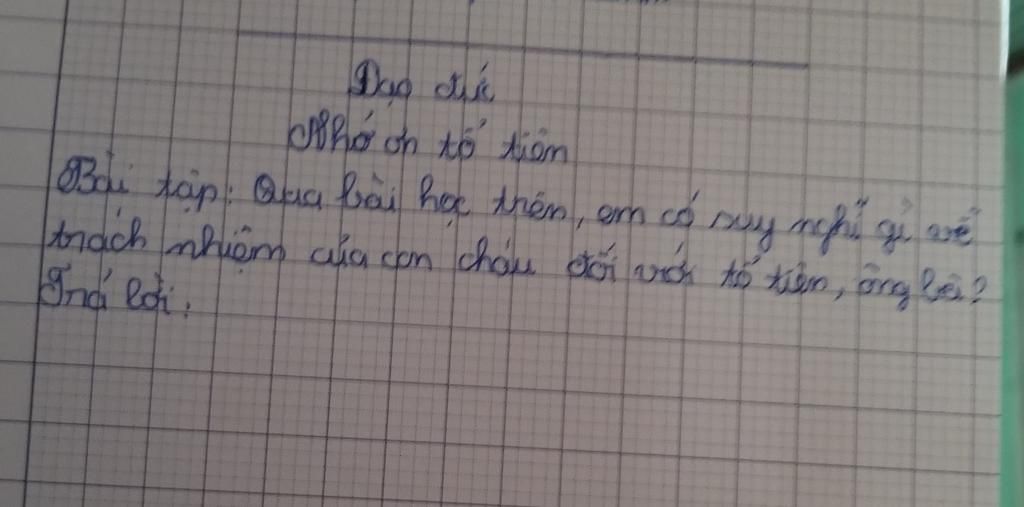 Đạo đức
Nhớ ơn tổ tiên
Bài tập: Qua bài học trên, em có suy nghĩ gì về
trách nhiệm của con cháu đối với tổ tiên, ông bà?
Trả lời: